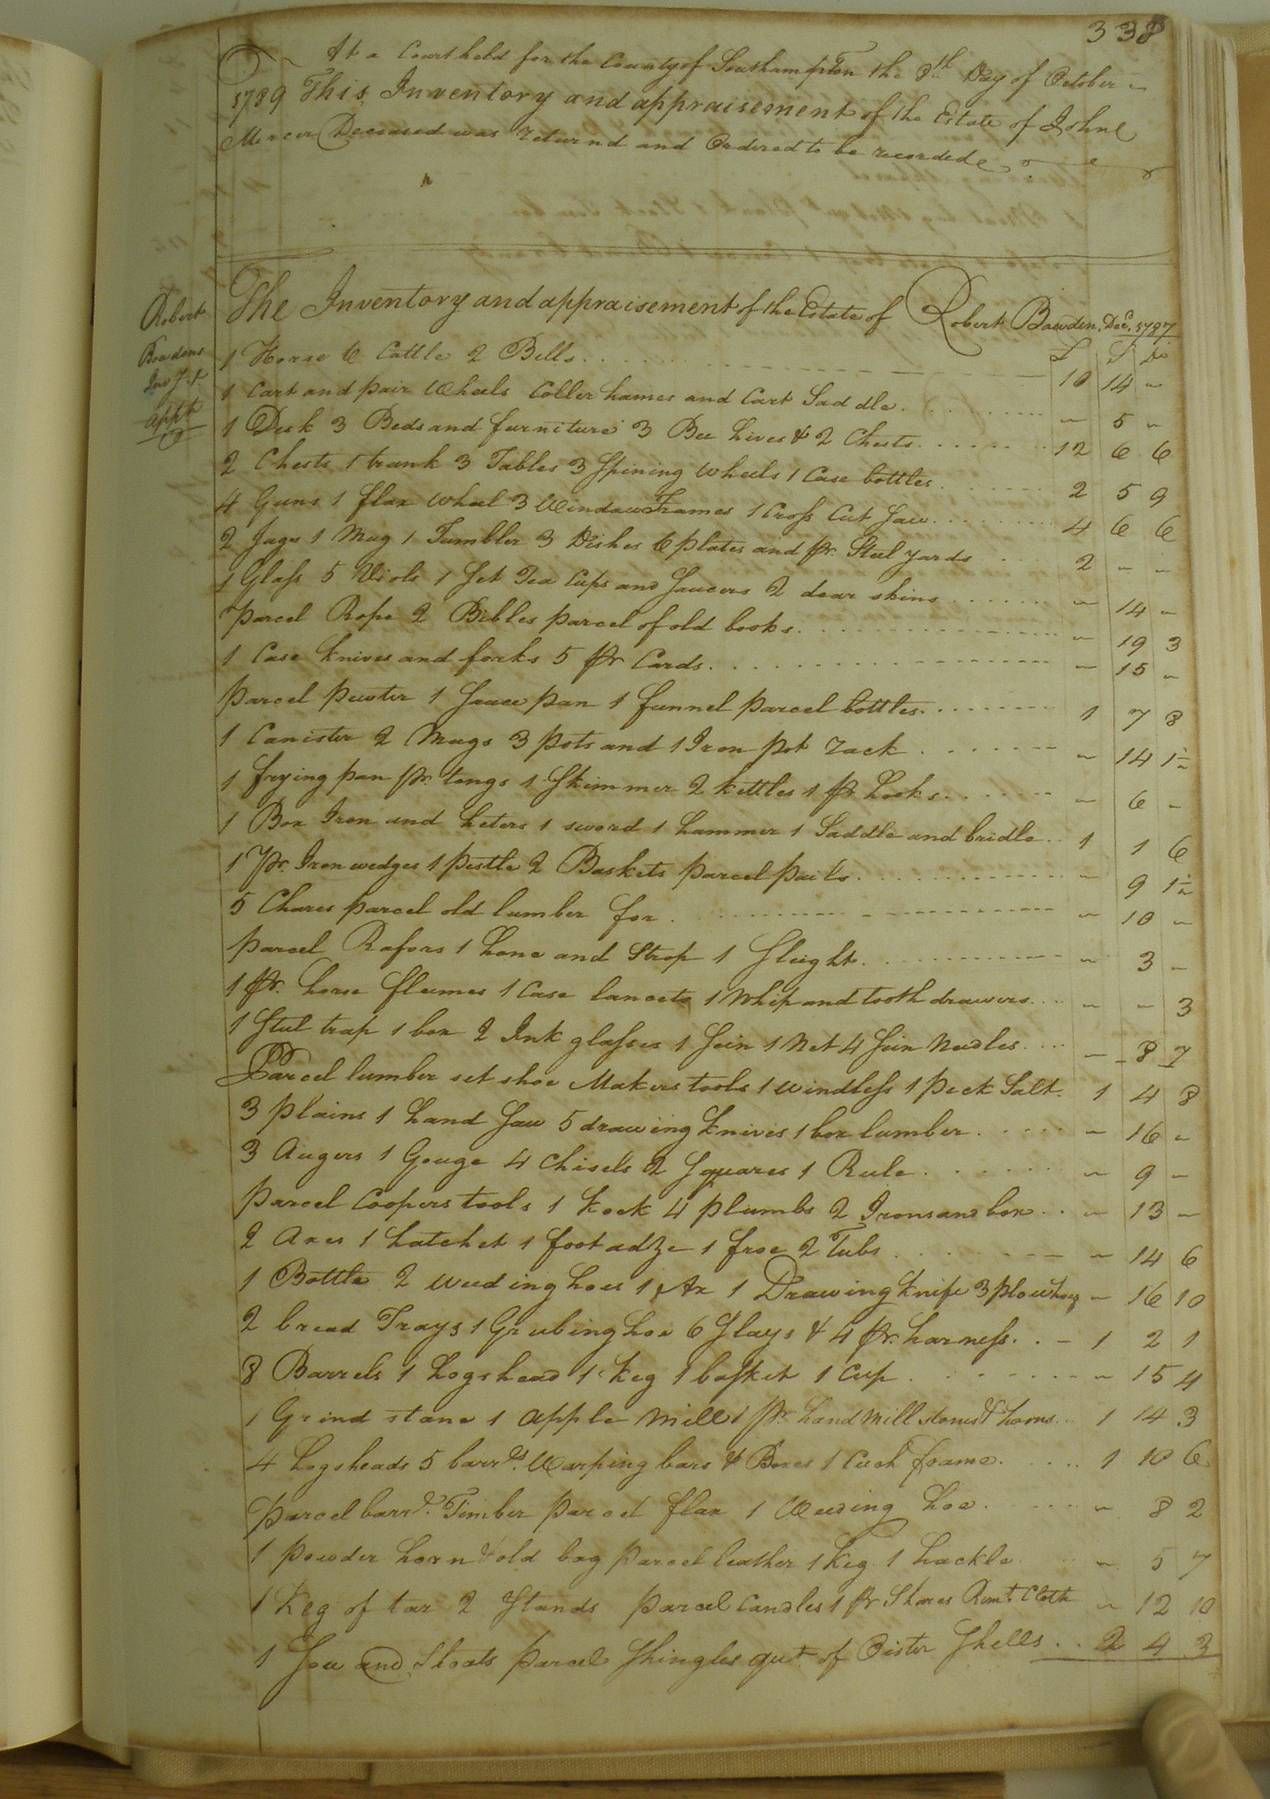 338
At a Court held for the County of Southampton the 8th Day of October
1789 This Inventory and appraisement of the Estate of John
Mercer Deceased was returnd and Ordered to be recorded
The Inventory and appraisement of the Estate of Robert Bowden. Decd. 1787
Robert
Bowdens
Inv. &
Appt
£ S D
1 Horse 6 Cattle 2 Bells 10 14 -
1 Cart and pair Wheels Coller hames and Cart Saddle - 5 -
1 Desk 3 Beds and furniture 3 Bee hives & 2 Chests 12 6 6
2 Chests 1 trunk 3 Tables 3 Spining Wheels 1 Case bottles 2 5 9
4 Guns 1 flax Wheel 3 Window Frames 1 Cross Cut Saw 4 6 6
2 Jugs 1 Mug 1 Tumbler 3 Dishes 6 plates and pr. Steelyards 2 - -
1 Glass 5 Viols 1 Set Tea Cups and Saucers 2 dear skins - 14 -
Parcel Rope 2 Bibles parcel of old books - 19 3
1 Case knives and forks 5 pr Cards - 15 -
parcel pewter 1 Sauce pan 1 funnel parcel bottles 1 7 8
1 Canister 2 Mugs 3 pots and 1 Iron pot rack - 14 1½
1 frying pan pr. tongs 1 Skimmer 2 kettles 1 pr hooks - 6 -
1 Box Iron and heters 1 sword 1 hammer 1 Saddle and bridle 1 1 6
1 pr. Iron wedges 1 pestle 2 Baskets parcel pails - 9 1½
5 Chares parcel old lumber for - 10 -
parcel Rasors 1 hone and Strop 1 Sleight - 3 -
1 pr. horse fleumes 1 Case lancets 1 Whip and tooth drawers - - 3
1 Steel trap 1 box 2 Ink glasses 1 Sein 1 Net 4 Sein Needles - 8 7
Parcel lumber set shoe Makers tools 1 windless 1 peck Salt 1 4 8
3 plains 1 hand Saw 5 drawing knives 1 box lumber - 16 -
3 Augers 1 Gouge 4 Chisels 2 Squares 1 Rule - 9 -
parcel Coopers tools 1 kock 4 plumbs 2 Irons and box - 13 -
2 Axes 1 hatchet 1 foot adze 1 froe 2 Tubs - 14 6
1 Bottle 2 weeding hoes 1 Ax 1 Drawing knife 3 plow hoes - 16 10
2 bread Trays 1 Grubing hoe 6 Slays & 4 pr. harness 1 2 1
8 Barrels 1 hogshead 1 keg 1 basket 1 Cup - 15 4
1 Grind stone 1 apple Mill 1 pr. hand Mill stones & hoops 1 14 3
4 hogsheads 5 barrls. Warping bars & Boxes 1 frame 1 10 6
parcel barrl. Timber parcel flax 1 Weeding hoe - 8 2
1 powder horn & old bag parcel leather 1 keg 1 hackle - 5 7
1 keg of tar 2 Stands parcel Candles 1 pr Shares Remt Cloth - 12 10
1 Sow and Shoats parcel Shingles qut. of Oister Shells 2 4 3